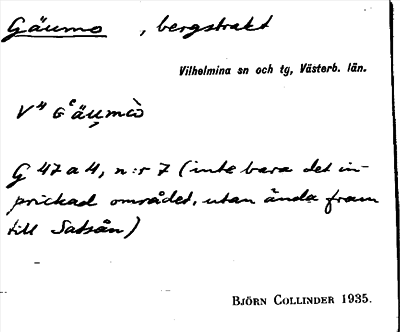 Gäumo, bergstrakt
Vilhelmina sn och tg, Västerb. län.
G 47 a 4, n:r 7 (inte bara det in-
prickad området, utan ända fram
till Satsån)
BJÖRN COLLINDER 1935.